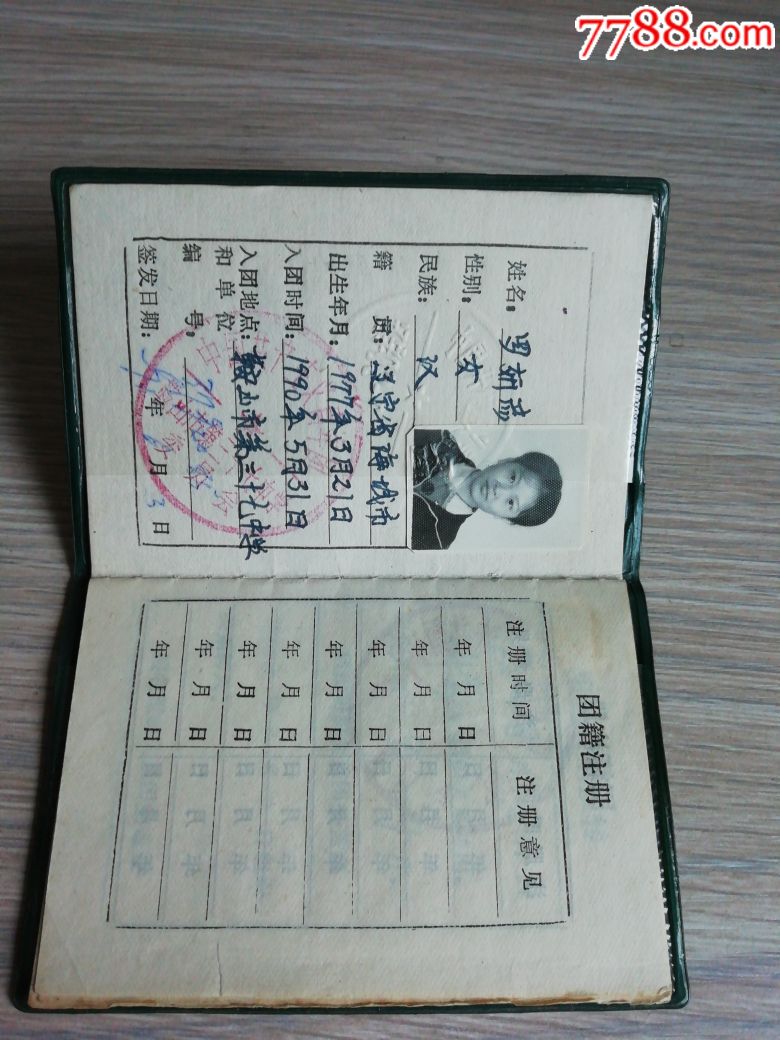 7788.com
姓名：罗
性别：女
民族：汉
籍贯：辽宁省海城市
出生年月：1977年3月21日
入团时间：1990年5月31日
入团地点和单位：鞍山市第三十九中学
编号：
签发日期： 年 月 3日
团籍注册
注册时间 注册意见
年 月 日
年 月 日
年 月 日
年 月 日
年 月 日
年 月 日
年 月 日
年 月 日